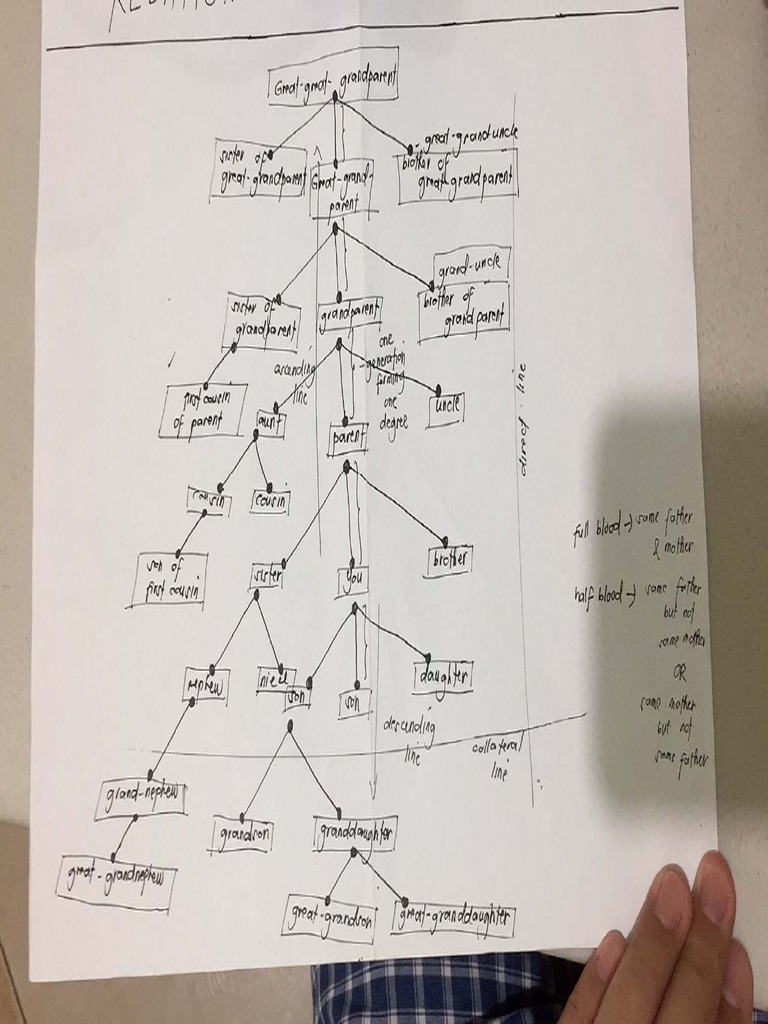 Great-great-grandparent
sister of
great-grandparent
Great-grand-
parent
-great-granduncle
brother of
great-grandparent
sister of
grandparent
grandparent
grand-uncle
brother of
grandparent
first cousin
of parent
ascending
line
one
generation
forming
one
degree
aunt
parent
uncle
direct line
cousin
cousin
son of
first cousin
sister
you
brother
full blood → same father
& mother
half blood → same father
but not
same mother
OR
same mother
but not
same father
nephew
niece
son
son
daughter
descending
line
collateral
line
grand-nephew
grandson
granddaughter
great-grandnephew
great-grandson
great-granddaughter